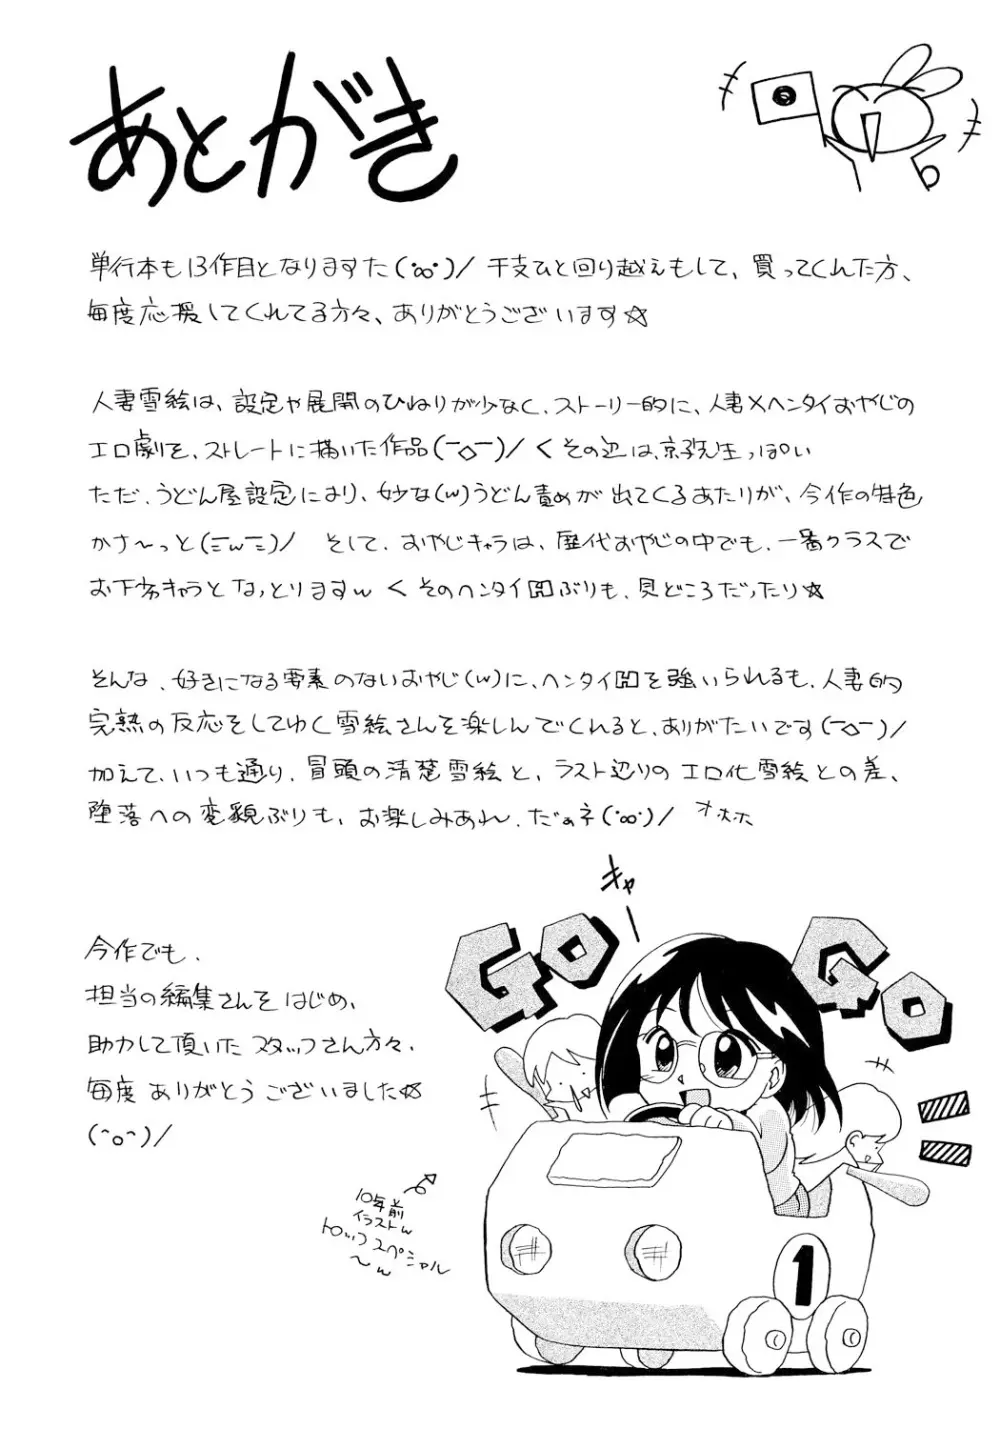 あとがき
単行本も13作目となりますた(・ω・)/ 干支ひと回り越えもして、買ってくれた方、
毎度応援してくれてる方々、ありがとうございます☆
人妻雪絵は、設定や展開のひねりが少なく、ストーリー的に、人妻×ヘンタイおやじの
エロ劇を、ストレートに描いた作品(￣◇￣)/ < その辺は、京子先生っぽい
ただ、うどん屋設定により、妙な(w)うどん責めが出てくるあたりが、今作の特色
かナ〜っと(￣w￣)/ そして、おやじキャラは、歴代おやじの中でも、一番クラスで
お下劣キャラとなっとりますw < そのヘンタイHぶりも、見どころだったり☆
そんな、好きになる要素のないおやじ(w)に、ヘンタイHを強いられるも、人妻的
完熟の反応をしてゆく雪絵さんを楽しんでくれると、ありがたいです(￣◇￣)/
加えて、いつも通り、冒頭の清楚雪絵と、ラスト辺りのエロ化雪絵との差、
堕落への変貌ぶりも、お楽しみあれ、だぁネ(・ω・)/ オホホ
キャー
GO GO
今作でも、
担当の編集さんをはじめ、
助力して頂いたスタッフさん方々、
毎度ありがとうございました☆
(^o^)/
10年前
イラストw
トップスペシャル
〜w
1